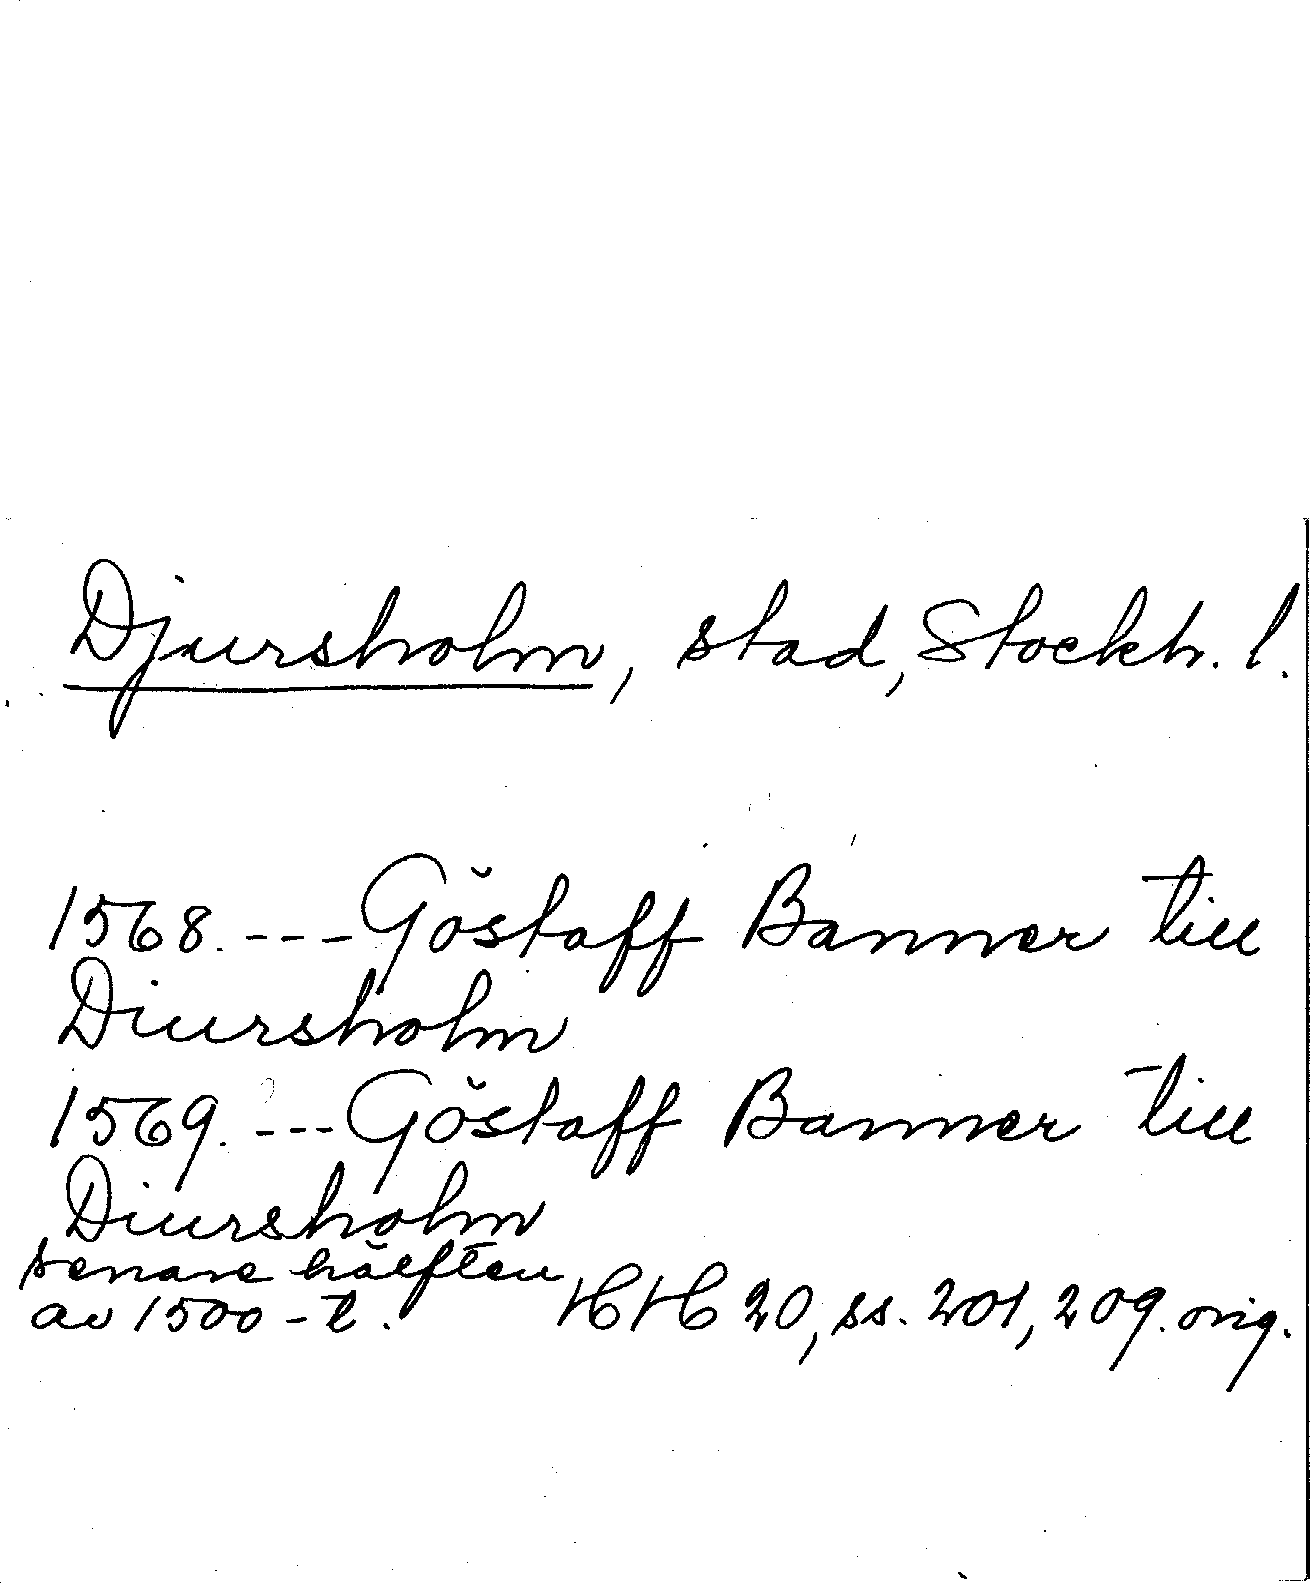 Djursholm, stad, Stockh. l.
1568. --- Göstaff Banner till
Diursholm
1569. --- Göstaff Banner till
Diursholm
senare hälften
av 1500-t. HH 20, ss. 201, 209. orig.